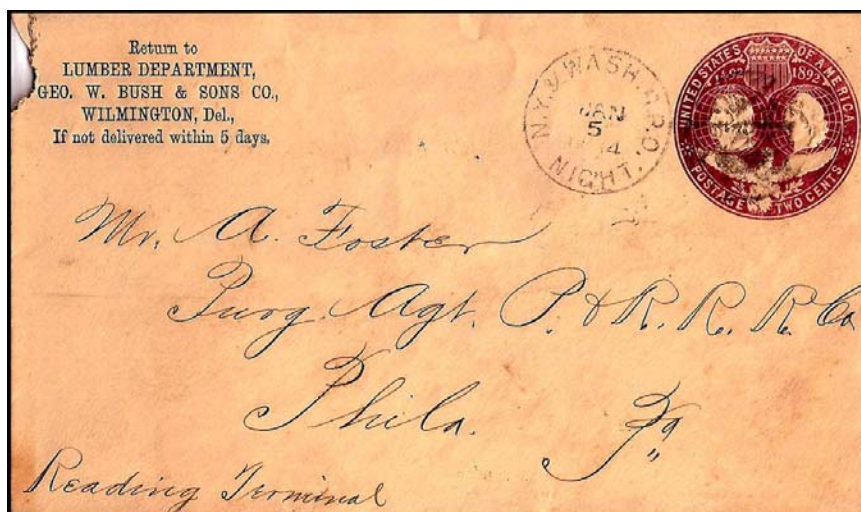 Return to
LUMBER DEPARTMENT,
GEO. W. BUSH & SONS CO.,
WILMINGTON, Del.,
If not delivered within 5 days.
N.Y. & WASH. R.P.O.
JAN
5
94
NIGHT.
UNITED STATES OF AMERICA
1492 1892
POSTAGE TWO CENTS
Mr. A. Foster
Purg. Agt. P. & R. R. R. Co
Phila. Pa
Reading Terminal